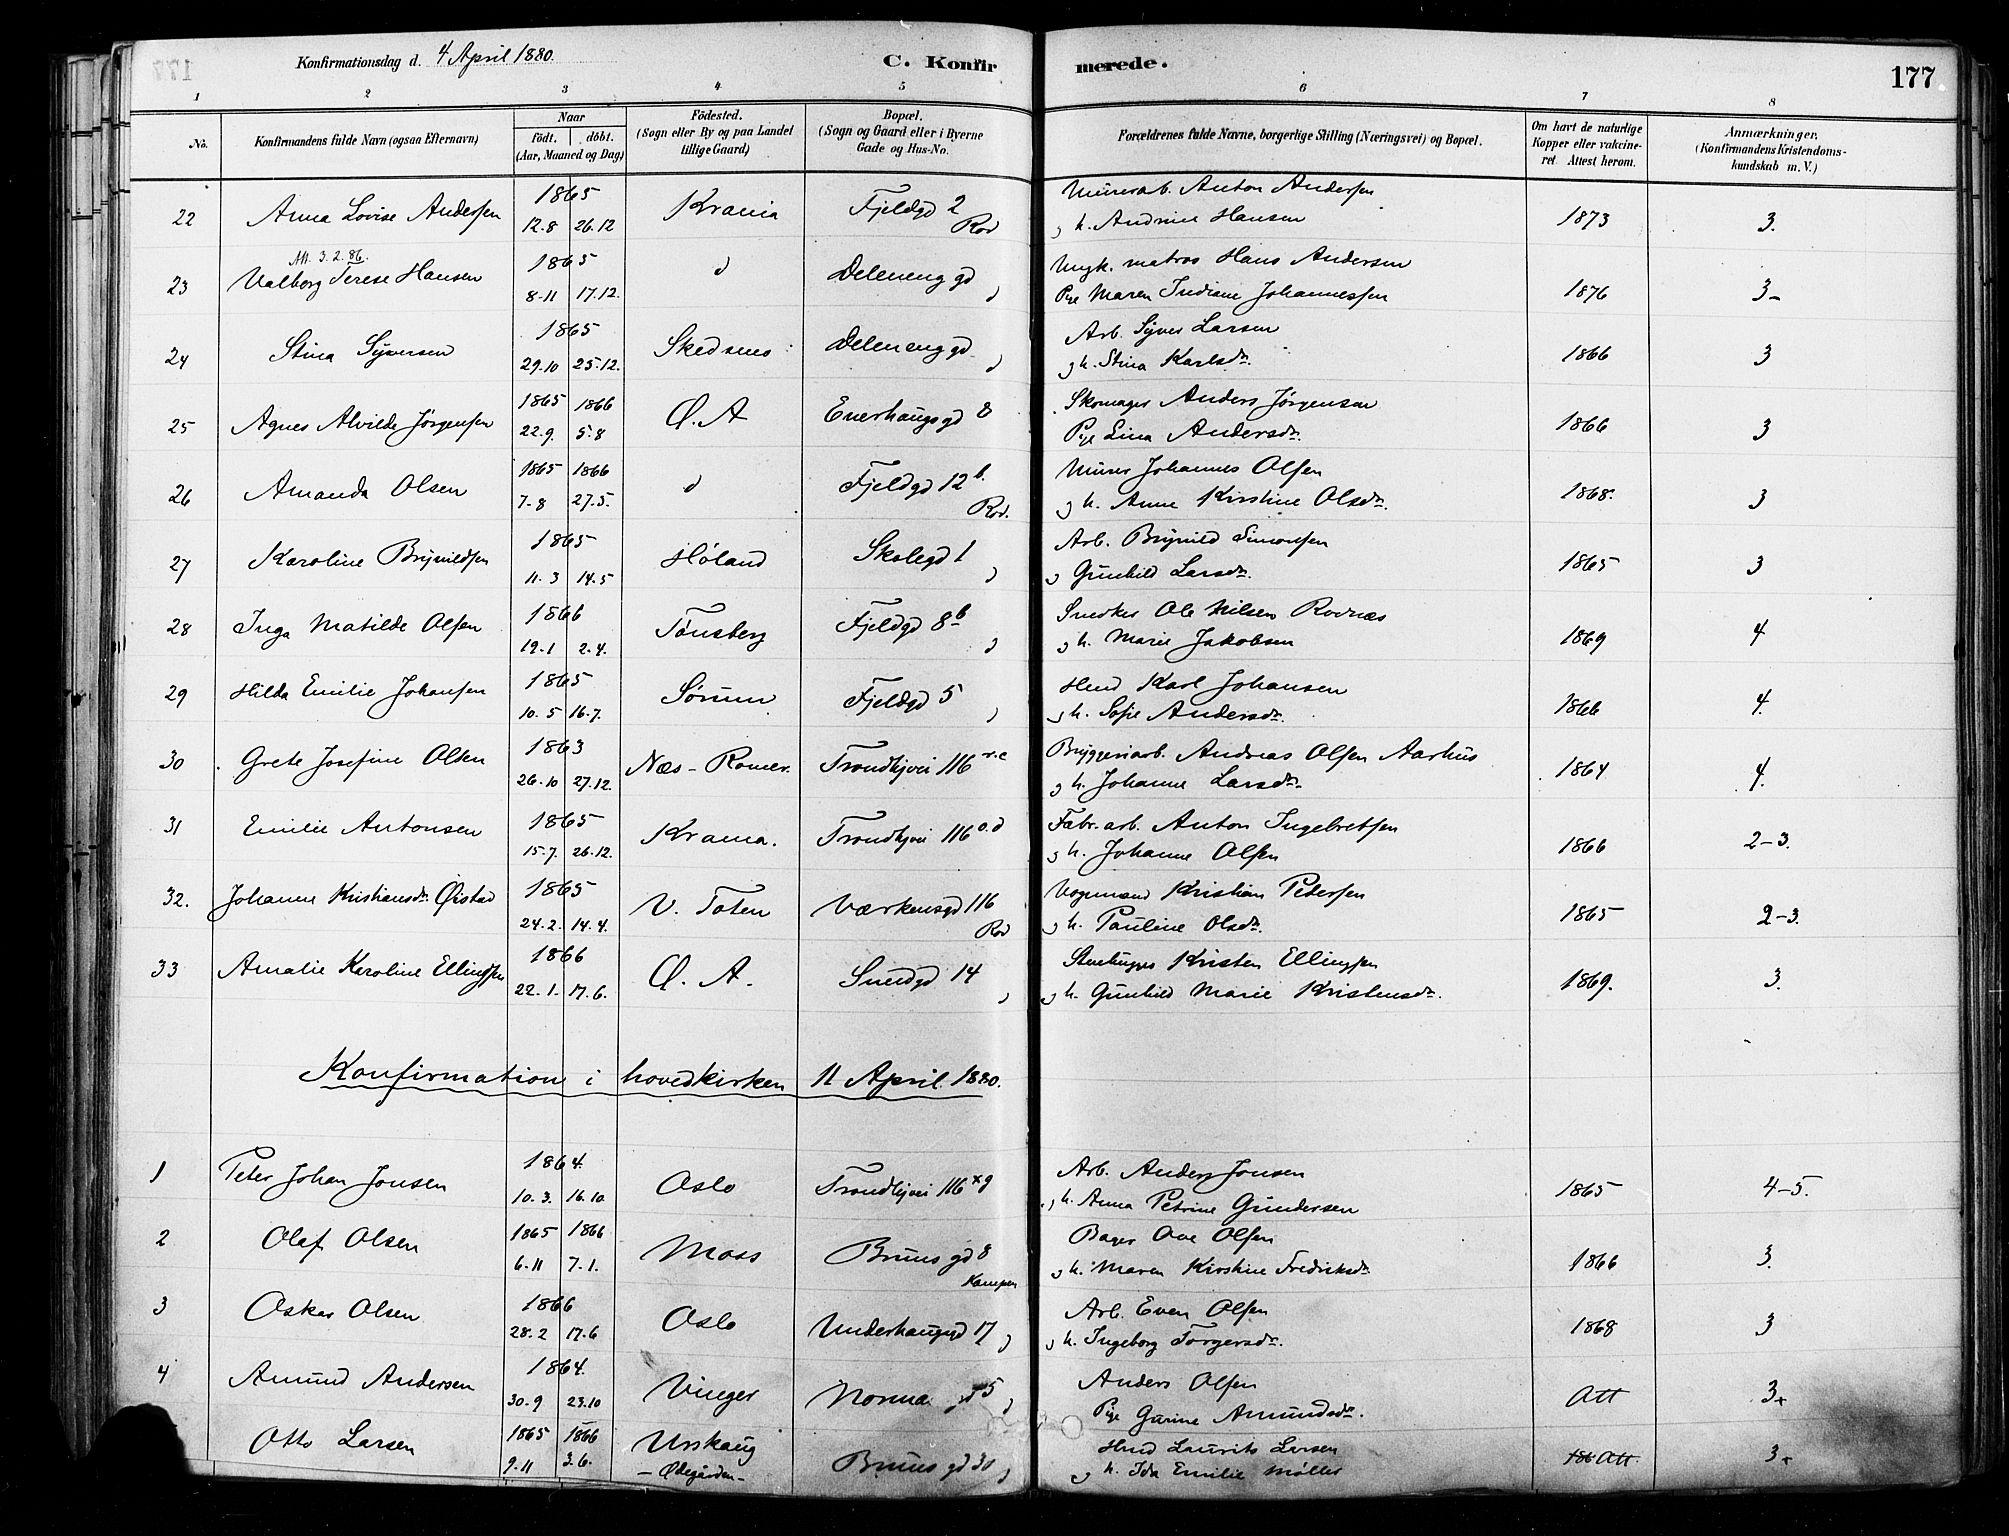 Konfirmationsdag d. 4 April 1880.
C. Konfirmerede.
177
1 2 3 4 5 6 7 8
No.
Konfirmandens fulde Navn (ogsaa Efternavn)
Naar
födt. döbt.
(Aar, Maaned og Dag)
Födested.
(Sogn eller By og paa Landet
tillige Gaard)
Bopæl.
(Sogn og Gaard eller i Byerne
Gade og Hus-No.
Forældrenes fulde Navne, borgerlige Stilling (Næringsvei) og Bopæl.
Om havt de naturlige
Kopper eller vakcine-
ret Attest herom.
Anmærkninger,
(Konfirmandens Kristendoms-
kundskab m. V.)
22 Anna Lovise Andersen 1865 12.8 26.12 Krania Fjeldgd 2 Rod
Murerarb. Anton Andersen
og h. Andrine Hansen 1873 3.
Att. 3.2.86.
23 Valborg Terese Hansen 1865 8-11 17.12. d Deleneng gd d
Ungk. matros Hans Andersen
Pige Maren Indiane Johannessen 1876 3-
24 Stina Syversen 1865 29.10 25.12. Skedsmo Deleneng gd d
Arb. Syver Larsen
og h. Stina Karlsdr. 1866 3
25 Agnes Alvilde Jørgensen 1865 1866 22.9. 5.8 Ø.A Enerhaugsgd 8
Skomager Anders Jørgensen
Pige Lina Andersdr. 1866 3
26 Amanda Olsen 1865 1866 7.8 27.5. d Fjeldgd 12 b. Rod.
Murer Johannes Olsen
og h. Anne Kirstine Olsdr. 1868. 3
27 Karoline Brynildsen 1865 11.3 14.5 Høland Skolegd 1 d
Arb. Brynild Simonsen
og Gunhild Larsdr. 1865 3
28 Inga Matilde Olsen 1866 19.1 2.4. Tønsberg Fjeldgd 8 b d
Snedker Ole Nilsen Rodnæs
og h. Marie Jakobsen 1869 4
29 Hilda Emilie Johansen 1865 10.5 16.7. Sørum Fjeldgd 5 d
Hmd Karl Johansen
og h. Sofie Andersdr. 1866 4.
30 Grete Josefine Olsen 1863 26.10 27.12. Næs-Romer. Trondhjvei 116
Bryggeriarb. Andreas Olsen Aarhus
og h. Johanne Larsdr. 1864 4.
31 Emilie Antonsen 1865 15.7. 26.12. Krania. Trondhjvei 116 o.d
Fabr.arb. Anton Ingebretsen
og h. Johanne Olsen 1866 2-3.
32. Johanne Kristiansdr. Øistad 1865 24.2. 14.4. V. Toten Værkensgd 116 Rod
Vognmand Kristian Petersen
og h. Pauline Olsdr. 1865 2-3.
33 Amalie Karoline Ellingsen 1866 22.1. 17.6. Ø.A. Smedgd 14 d
Stenhugger Kristen Ellingsen
og h. Gunhild Marie Kristensdr. 1869. 3.
Konfirmation i hovedkirken 11 April 1880.
1 Peter Johan Jonsen 1864. 10.3. 16.10 Oslo Trondhjvei 116 x g
Arb. Anders Jonsen
og h. Anna Petrine Gundersen 1865 4-5.
2 Olaf Olsen 1865 1866 6.11 7.1. Moss Bruns gd 8 Kampen
Bager Ove Olsen
og h. Maren Kirstine Fredriksdr. 1866 3.
3 Oskar Olsen 1866 28.2 17.6 Oslo Underhaugsgd 17 d
Arb. Even Olsen
og h. Ingeborg Torgersdr. 1868 3
4 Amund Andersen 1864. 30.9 23.10 Vinger Norma gd 5 d
Anders Olsen
Pige Gurine Amundsdr. Att 3+
Otto Larsen 1865 1866 9.11 3.6. Urskaug -Ødegården- Bruns gd 30 d
Hmd Laurits Larsen
og h. Ida Emilie Møller 186 Att. 3+